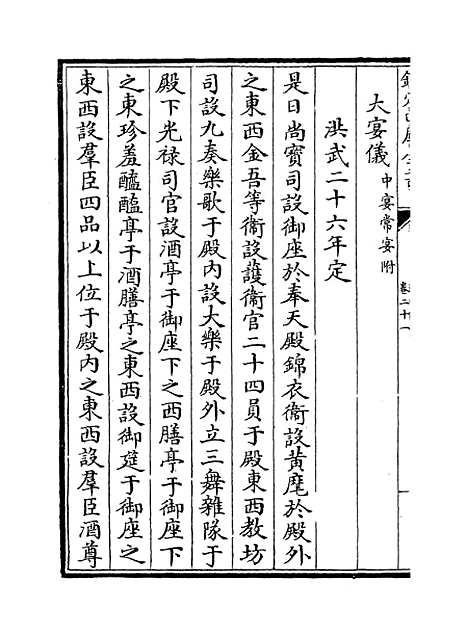 大宴儀中宴常宴附
洪武二十六年定
是日尚寳司設御座於奉天殿錦衣衛設黄麾於殿外
之東西金吾等衛設䕶衛官二十四員于殿東西教坊
司設九奏樂歌于殿内設大樂于殿外立三舞雜隊于
殿下光禄司官設酒亭于御座下之西膳亭于御座下
之東珍羞醯醢亭于酒膳亭之東西設御筵于御座之
東西設羣臣四品以上位于殿内之東西設羣臣酒尊